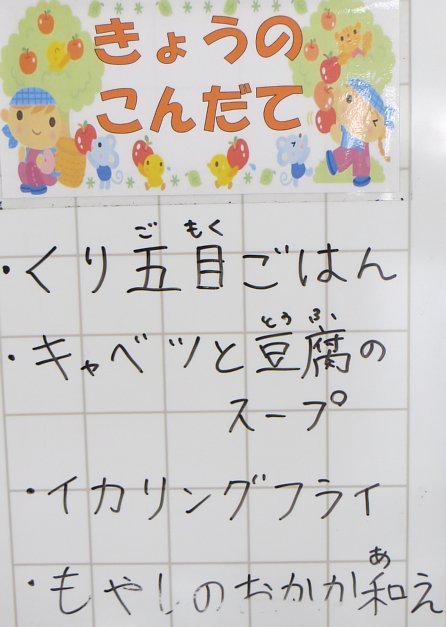 きょうの
こんだて
・くり五目ごはん
・キャベツと豆腐の
スープ
・イカリングフライ
・もやしのおかか和え